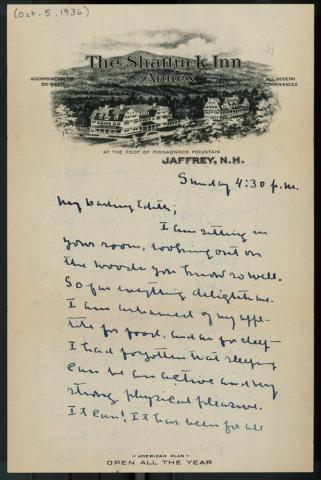 (Oct. 5, 1936)
The Shattuck Inn
Annex
ACCOMMODATION FOR
200 GUESTS
ALL MODERN
CONVENIENCES
AT THE FOOT OF MONADNOCK MOUNTAIN
JAFFREY, N.H.
Sunday 4:30 p.m.
My Darling Edith;
I am sitting in
your room, looking out on
the woods you know so well.
So far everything delights me.
I am ashamed of my appe-
tite for food, and as for sleep
I had forgotten that sleeping
can be an active and very
strong physical pleasure.
It can! It has been for all
~ AMERICAN PLAN ~
OPEN ALL THE YEAR